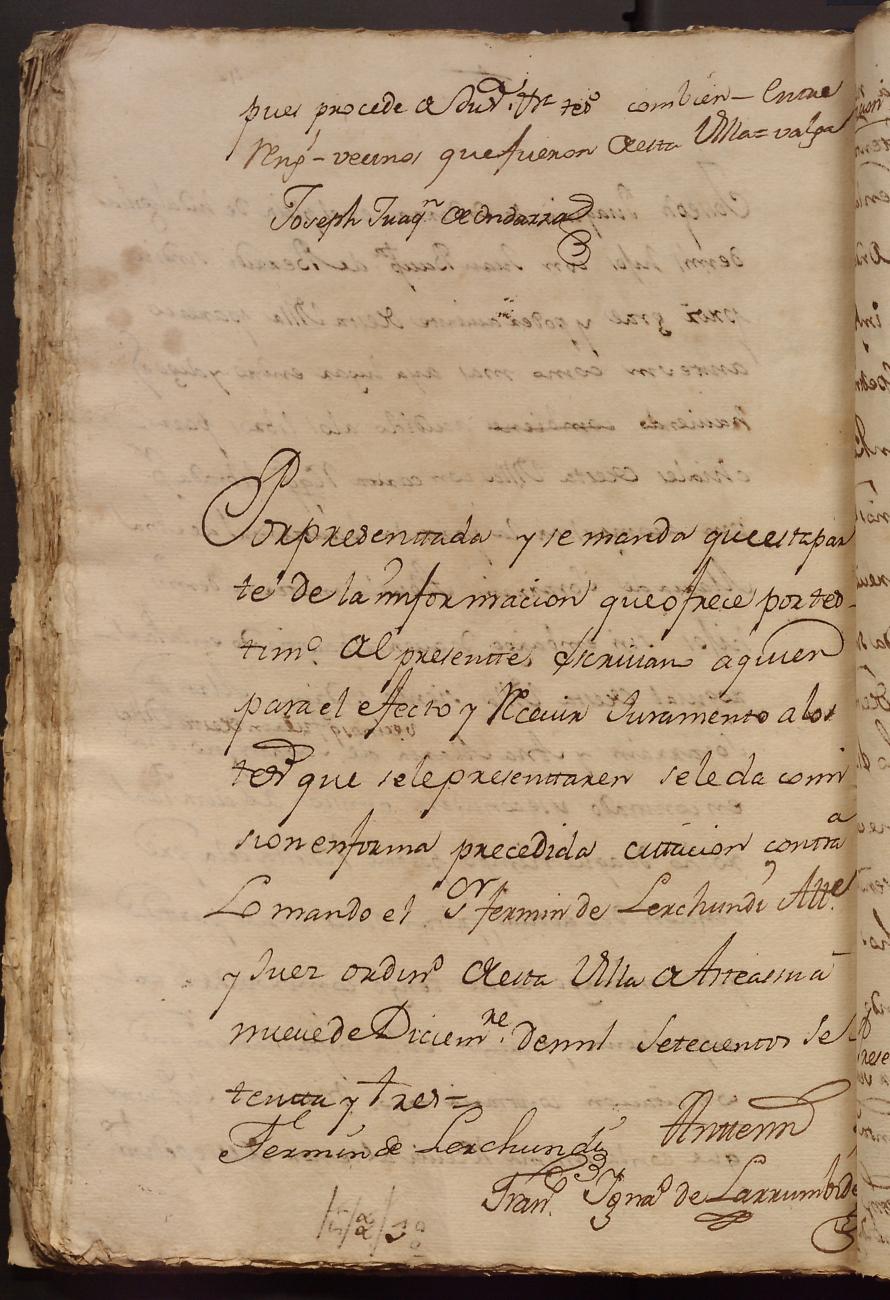 pues procede combien= Entre
Reng.s= vecinos que fueron desta Villa= valga
Joseph Juaq.n de Ondarza
Por presenttada y se manda que esta par
te dé la ynformacion que ofrece por tes
tim.o al presentte escrivano a quien
para el efecto y Recivir Juramento a los
tes.s que se le presenttaren se le da comi
sion en forma precedida cittacion contr.a
Lo mando el S.r fermin de Lerchundi Alc.e
y Juez ordin.o desta Villa de Arteassu a
nueve de Diciem.re de mil setecientos se
tentta y tres=
Fermin de Lerchundi Antte mi
Fran.co Ygna.o de Larrumbide